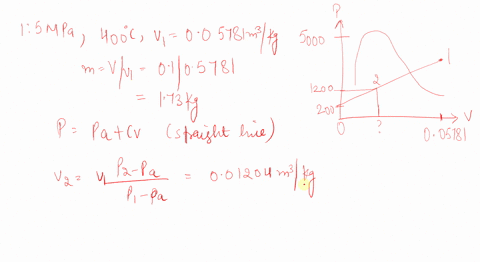 1: 5 MPa, 400°C, v₁ = 0.05781 m³/kg
m = V/v₁ = 0.1/0.5781
= 1.73 kg
P = Pa + Cv (straight line)
v₂ = v₁ P₂ - Pa / P₁ - Pa = 0.01204 m³/kg
P
5000
1
2
1200
200
0
?
V
0.05781